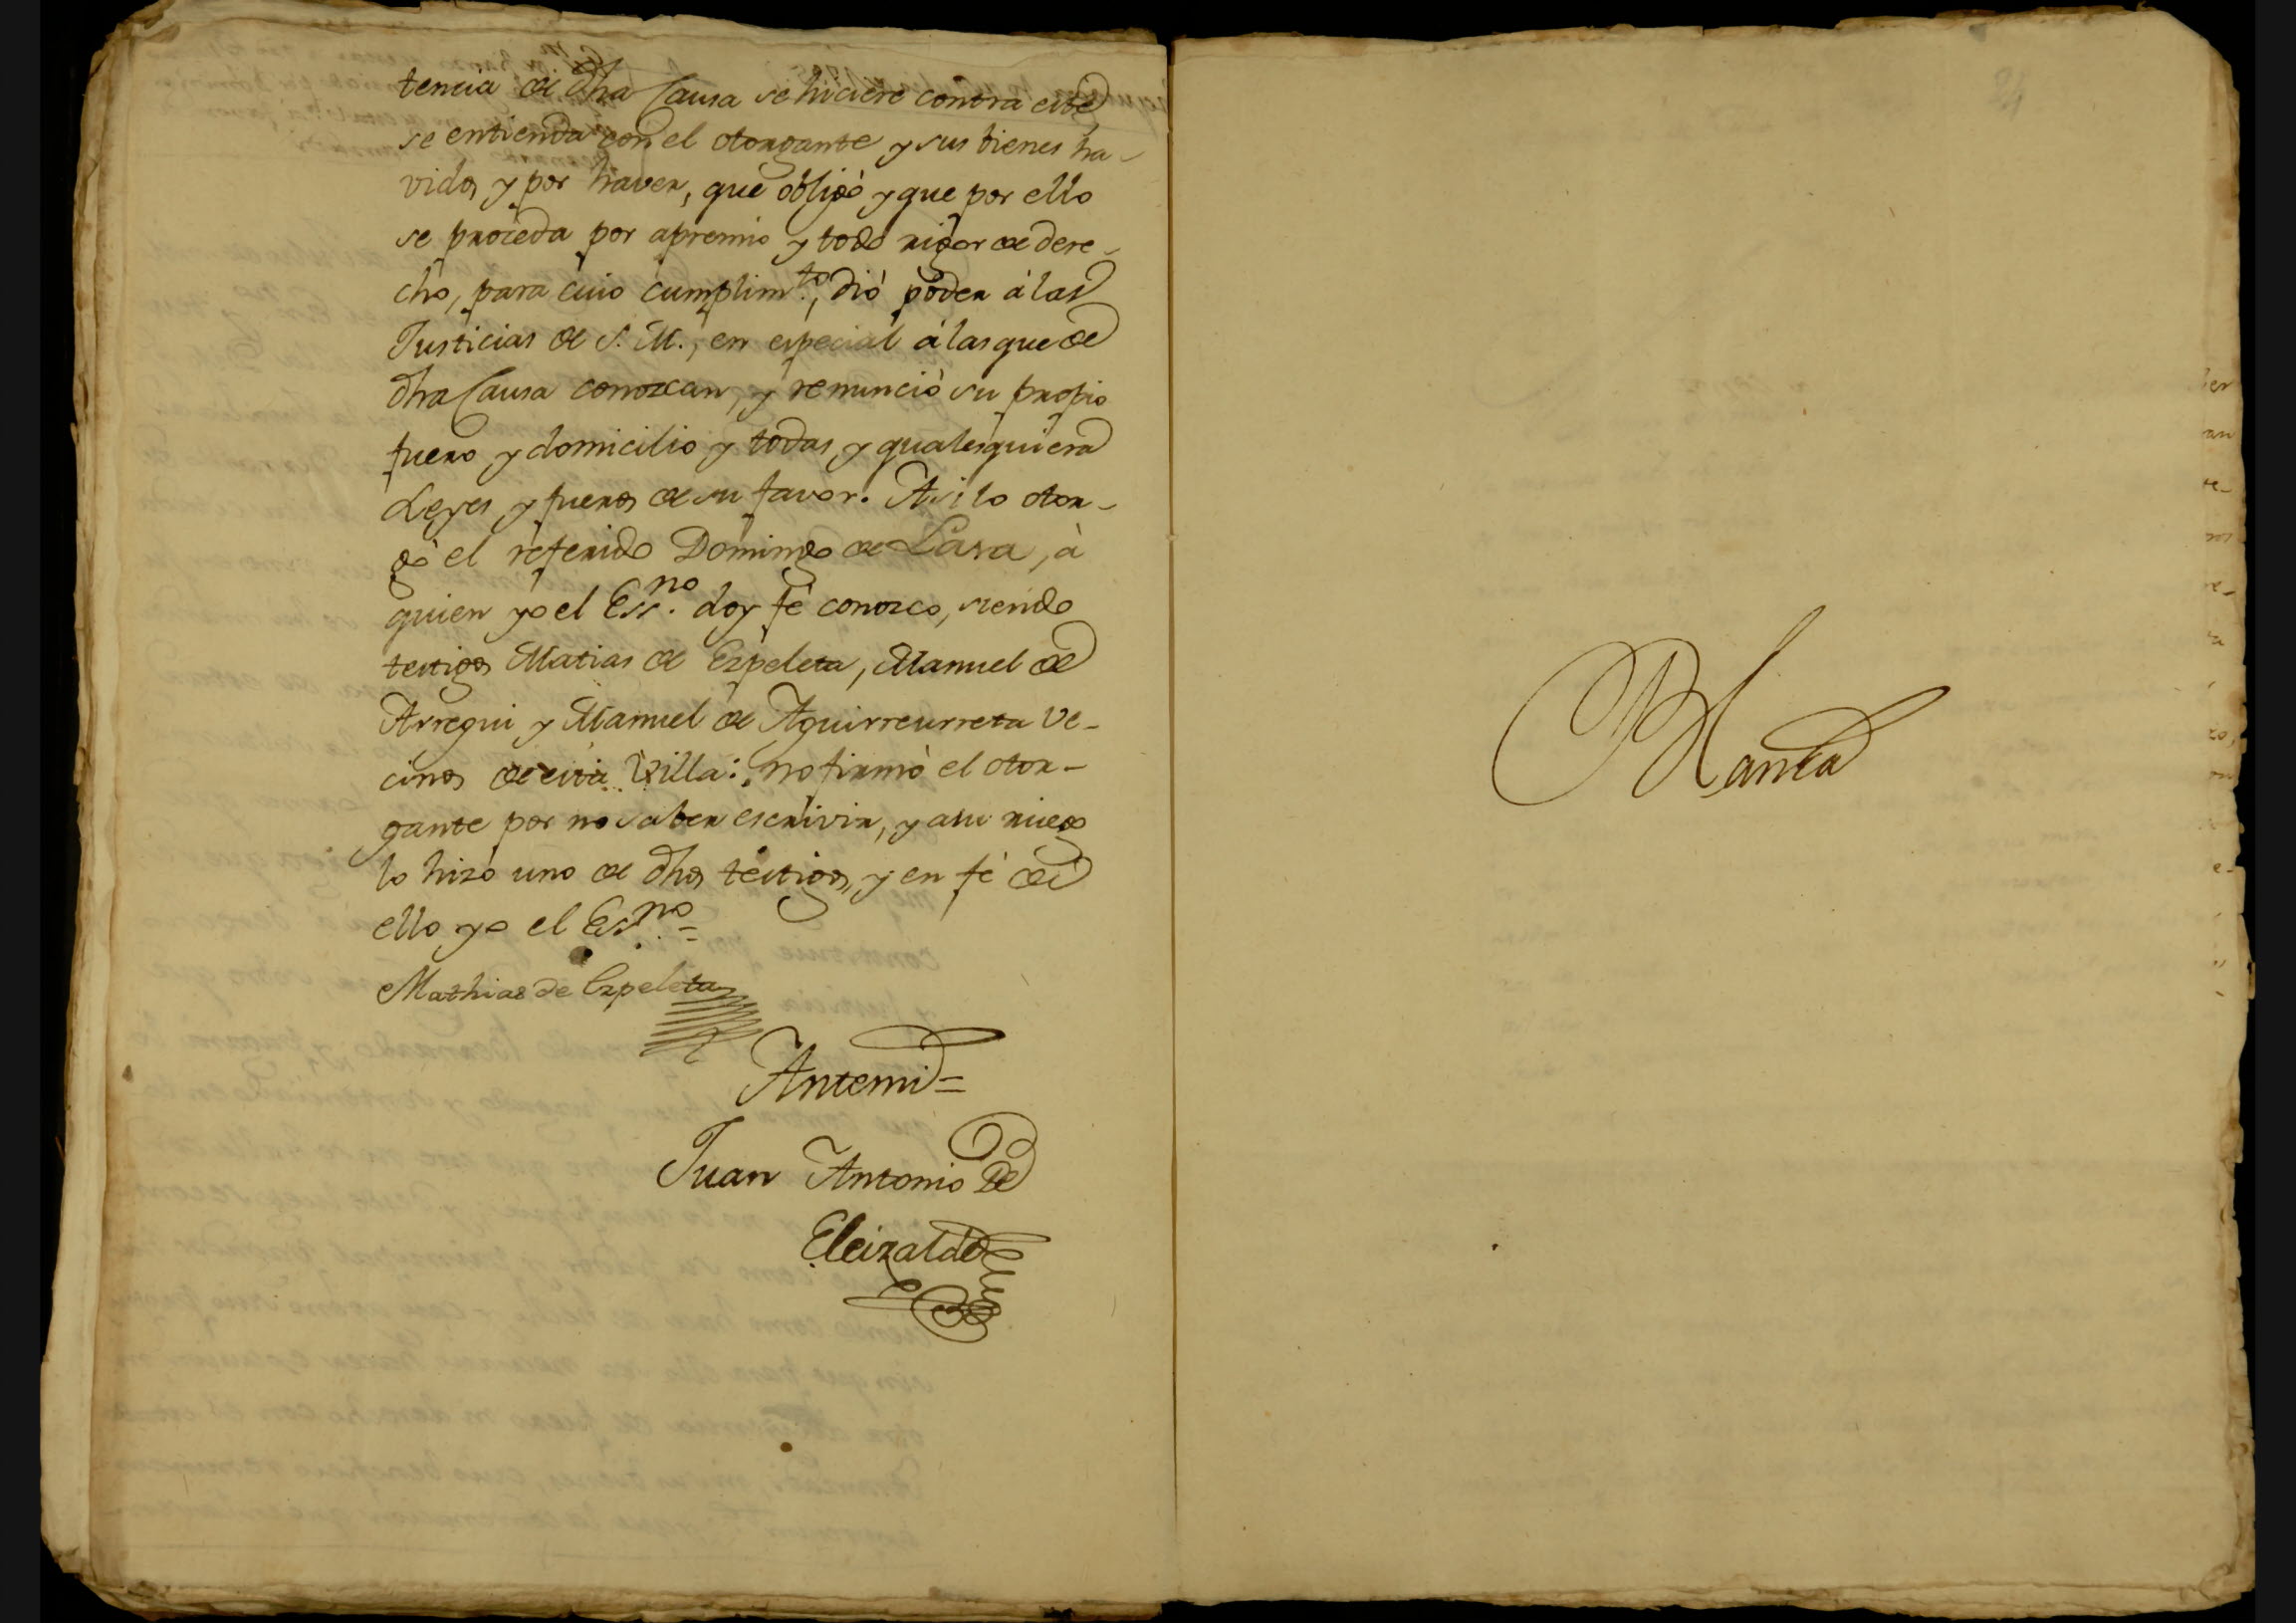 tencia de dha Causa se hiciere contra este
se entienda con el otorgante y sus bienes ha-
vidos y por haver, que obligò y que por ello
se proceda por apremio y todo rigor de dere-
cho, para cuio cumplimto, diò poder à las
Justicias de S. M., en especial à las que de
dha Causa conozcan, y renunciò su propio
fuero y domicilio y todas, y qualesquiera
Leyes y fueros de su favor. Asi lo otor-
gò el referido Domingo de Lasa, à
quien yo el Essno. doy fè conozco, siendo
testigos Matias de Ezpeleta, Manuel de
Arregui y Manuel de Aguirreurreta ve-
cinos de esta Villa: no firmò el otor-
gante por no saber escrivir, y a su ruego
lo hizo uno de dhos testigos, y en fè de
ello yo el Essno =
Mathias de Ezpeleta
Antemi =
Juan Antonio de
Eleizalde
Blanca